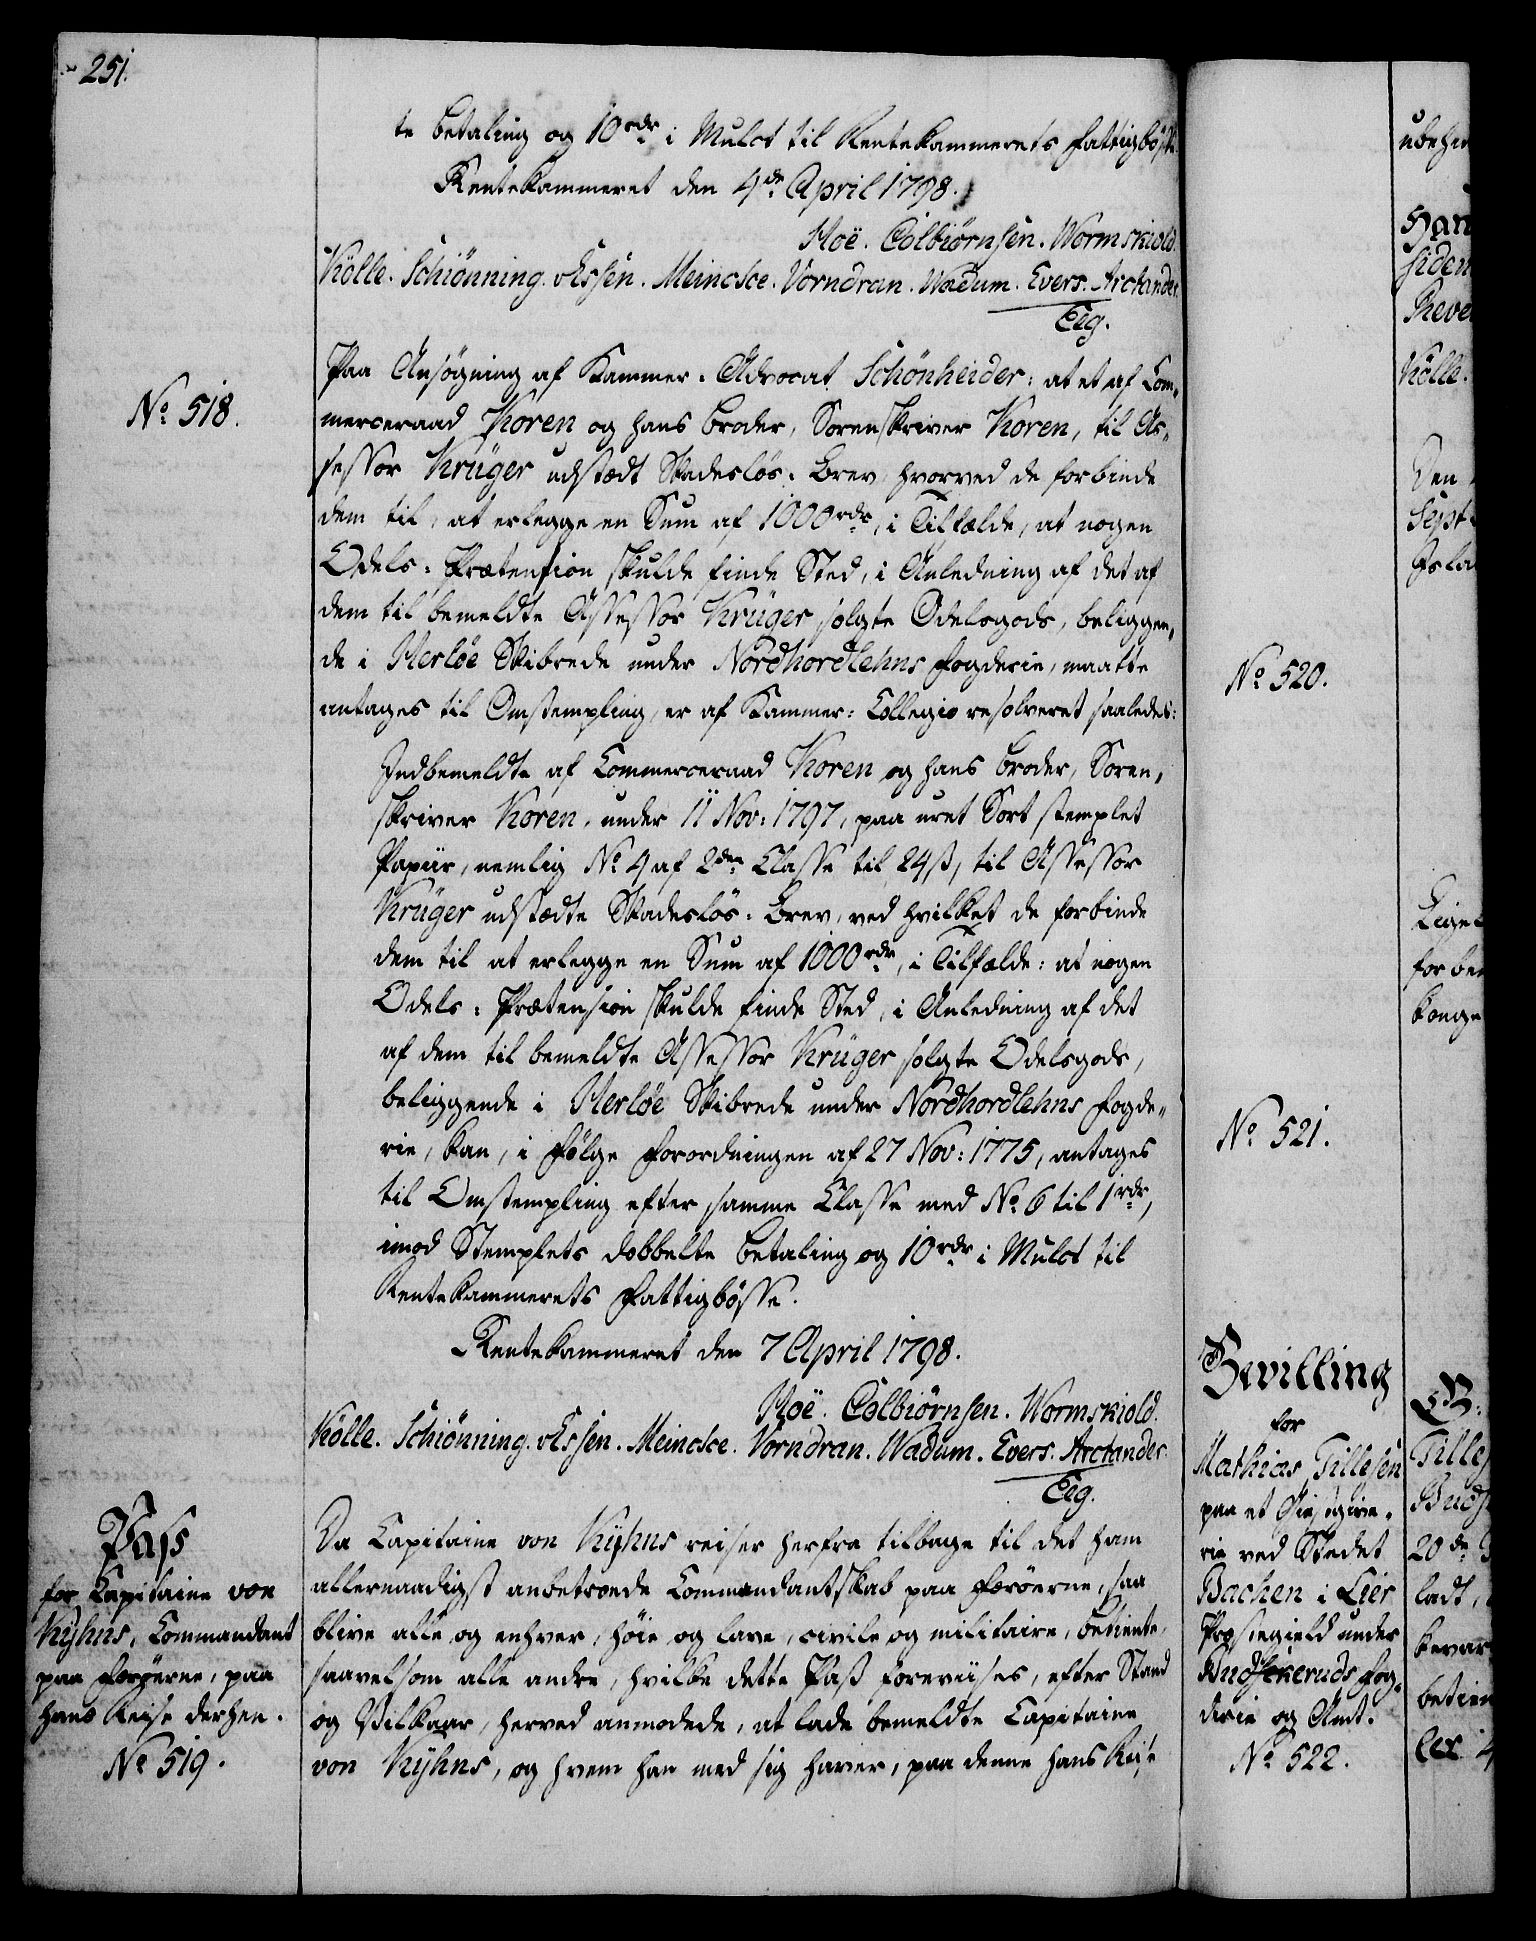 251.
te betaling og 10 rdr i Mulct til Rentekammerets Fattigbösse.
Rentekammeret den 4de April 1798.
Hoë. Colbiörnsen. Wormskiold.
Kölle. Schiönning. v Essen. Meincke. Vorndran. Wadum. Evers. Arctander.
Eeg.
No 518.
Paa Ansögning af Kammer-Advocat Schönheider: at et af Com-
merceraad Koren og hans broder, Sorenskriver Koren, til As-
sessor Krüger udstædt Skadeslös-Brev hvorved de forbinde
dem til, at erlegge en Sum af 1000 rdr, i Tilfælde, at nogen
Odels-Prætension skulde finde Sted, i Anledning af det af
dem til bemeldte Assessor Krüger solgte Odelsgods, beliggen-
de i Herlöe Skibrede under Nordhordlehns Fogderie, maatte
antages til Omstempling, er af Kammer-Collegio resolveret saaledes:
Indbemeldte af Commerceraad Koren og hans broder, Soren-
skriver Koren, under 11 Nov: 1797, paa uret Sort stemplet
Papiir, nemlig No 4 af 2den Classe til 24 ß, til Assessor
Krüger udstædte Skadeslös-Brev, ved hvilket de forbinde
dem til at erlegge en Sum af 1000 rdr, i Tilfælde: at nogen
Odels-Prætension skulde finde Sted, i Anledning af det
af dem til bemeldte Assessor Krüger solgte Odelsgods,
beliggende i Herlöe Skibrede under Nordhordlehns Fogde-
rie, kan, i Fölge Forordningen af 27 Nov: 1775, antages
til Omstempling efter samme Classe med No 6 til 1 rdr,
imod Stemplets dobbelte betaling og 10 rdr i Mulct til
Rentekammerets Fattigbösse.
Rentekammeret den 7 April 1798.
Hoë. Colbiörnsen. Wormskiold.
Kölle. Schiönning. v Essen. Meincke. Vorndran. Wadum. Evers. Arctander.
Eeg.
Pass
for Capitaine von
Kyhns, Commandant
paa Færöerne, paa
hans Reise derhen.
No 519.
Da Capitaine von Kyhns reiser herfra tilbage til det ham
allernaadigst anbetroede Commandantskab paa Færöerne, saa
blive alle og enhver, höie og lave, civile og militaire, betiente,
saavelsom alle andre, hvilke dette Pass foreviises, efter Stand
og Vilkaar, herved anmodede, at lade bemeldte Capitaine
von Kyhns, og hvem han med sig haver, paa denne hans Reise
No 520.
No 521.
Bevilling
for
Mathias Tillesen
paa et Giestgive-
rie ved Stedet
Bachen i Lier
Præstegield under
Budskeruds Fog-
derie og Amt.
No 522.
Kölle.
Den
Sept
Tilles
20de
ladt,